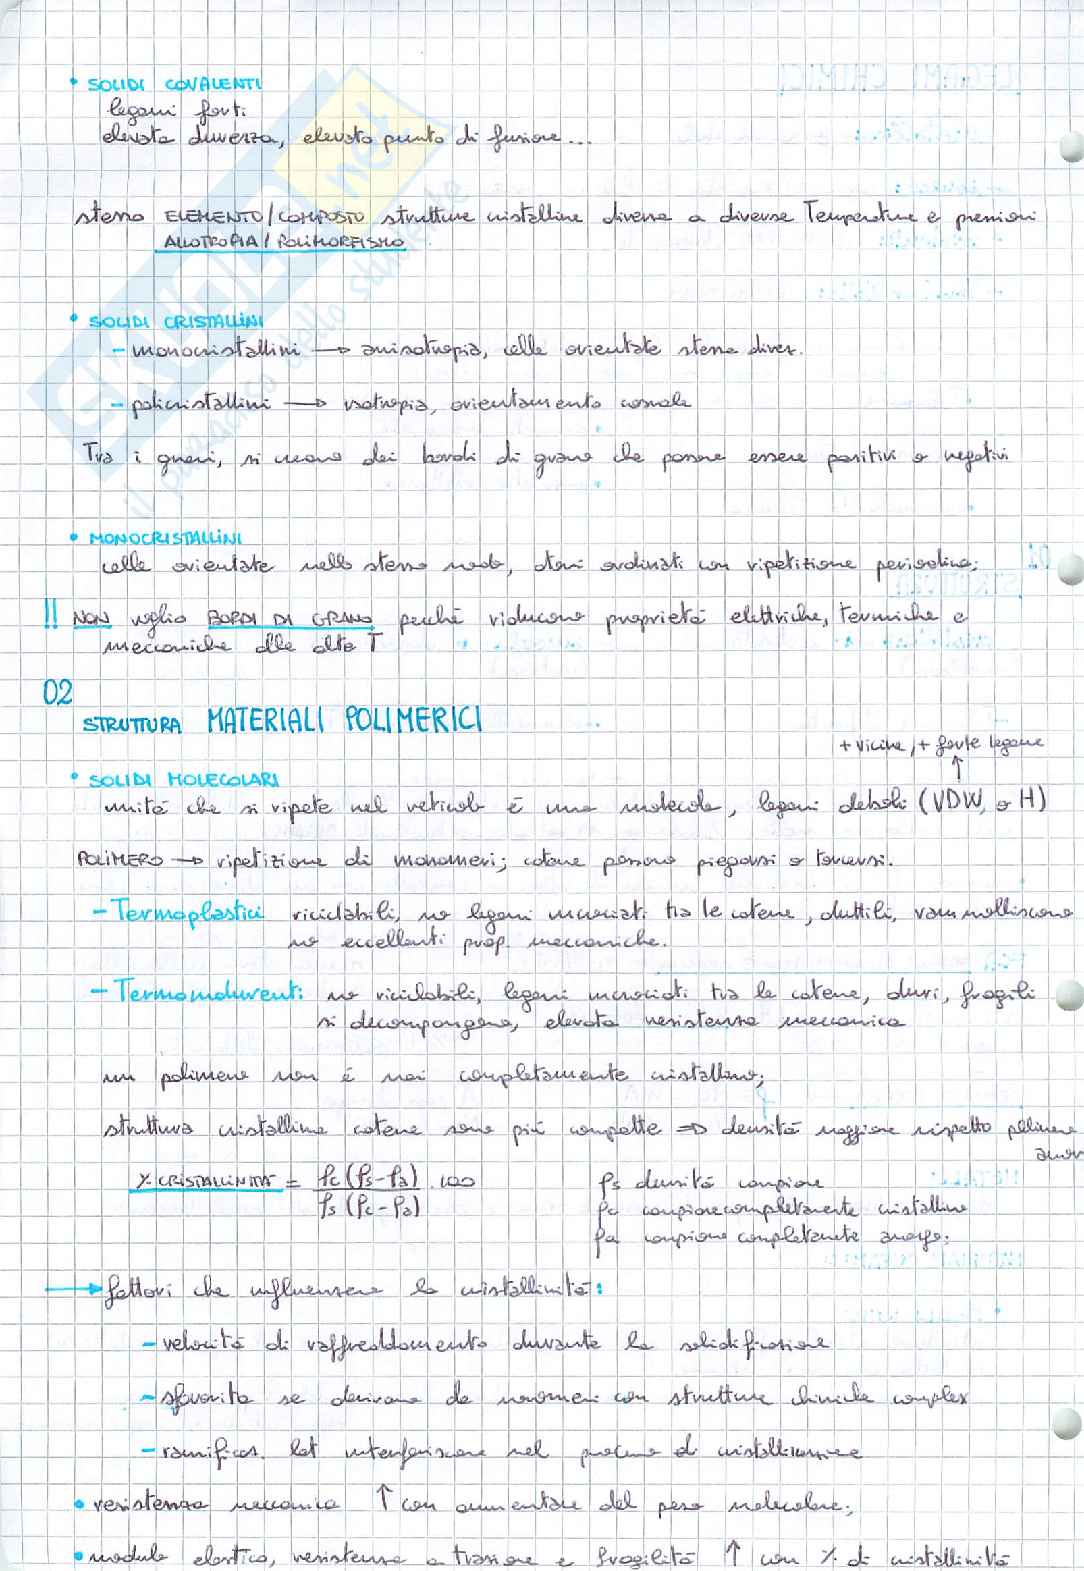 • SOLIDI COVALENTI
legami forti
elevata durezza, elevato punto di fusione...
stesso ELEMENTO/COMPOSTO strutture cristalline diverse a diverse Temperature e pressioni
ALLOTROPIA / POLIMORFISMO
• SOLIDI CRISTALLINI
- monocristallini → anisotropia, celle orientate stessa direz.
- policristallini → isotropia, orientamento casuale
Tra i grani, si creano dei bordi di grano che possono essere positivi o negativi
• MONOCRISTALLINI
celle orientate nello stesso modo, atomi ordinati con ripetizione periodica;
!! NON voglio BORDI DI GRANO perché riducono proprietà elettriche, termiche e
meccaniche alle alte T
02
STRUTTURA MATERIALI POLIMERICI
+ vicine, + forte legame
↑
• SOLIDI MOLECOLARI
unità che si ripete nel reticolo è una molecola, legami deboli (VDW, o H)
POLIMERO → ripetizione di monomeri; catene possono piegarsi o torcersi.
- Termoplastici riciclabili, no legami incrociati tra le catene, duttili, rammolliscono
no eccellenti prop. meccaniche.
- Termoindurenti no riciclabili, legami incrociati tra le catene, duri, fragili
si decompongono, elevata resistenza meccanica
un polimero non è mai completamente cristallino;
struttura cristallina catene sono più compatte ⇒ densità maggiore rispetto polimero
amor
% CRISTALLINITÀ = ρc (ρs - ρa) / ρs (ρc - ρa) · 100
ρs densità campione
ρc campione completamente cristallino
ρa campione completamente amorfo;
→ fattori che influenzano la cristallinità:
- velocità di raffreddamento durante la solidificazione
- sfavorita se derivano da monomeri con strutture chimiche complex
- ramificaz. lat interferiscono nel processo di cristallizzazione
• resistenza meccanica ↑ con aumentare del peso molecolare;
• modulo elastico, resistenza a trazione e fragilità ↑ con % di cristallinità
SKUOLA.net
il paradiso dello studente